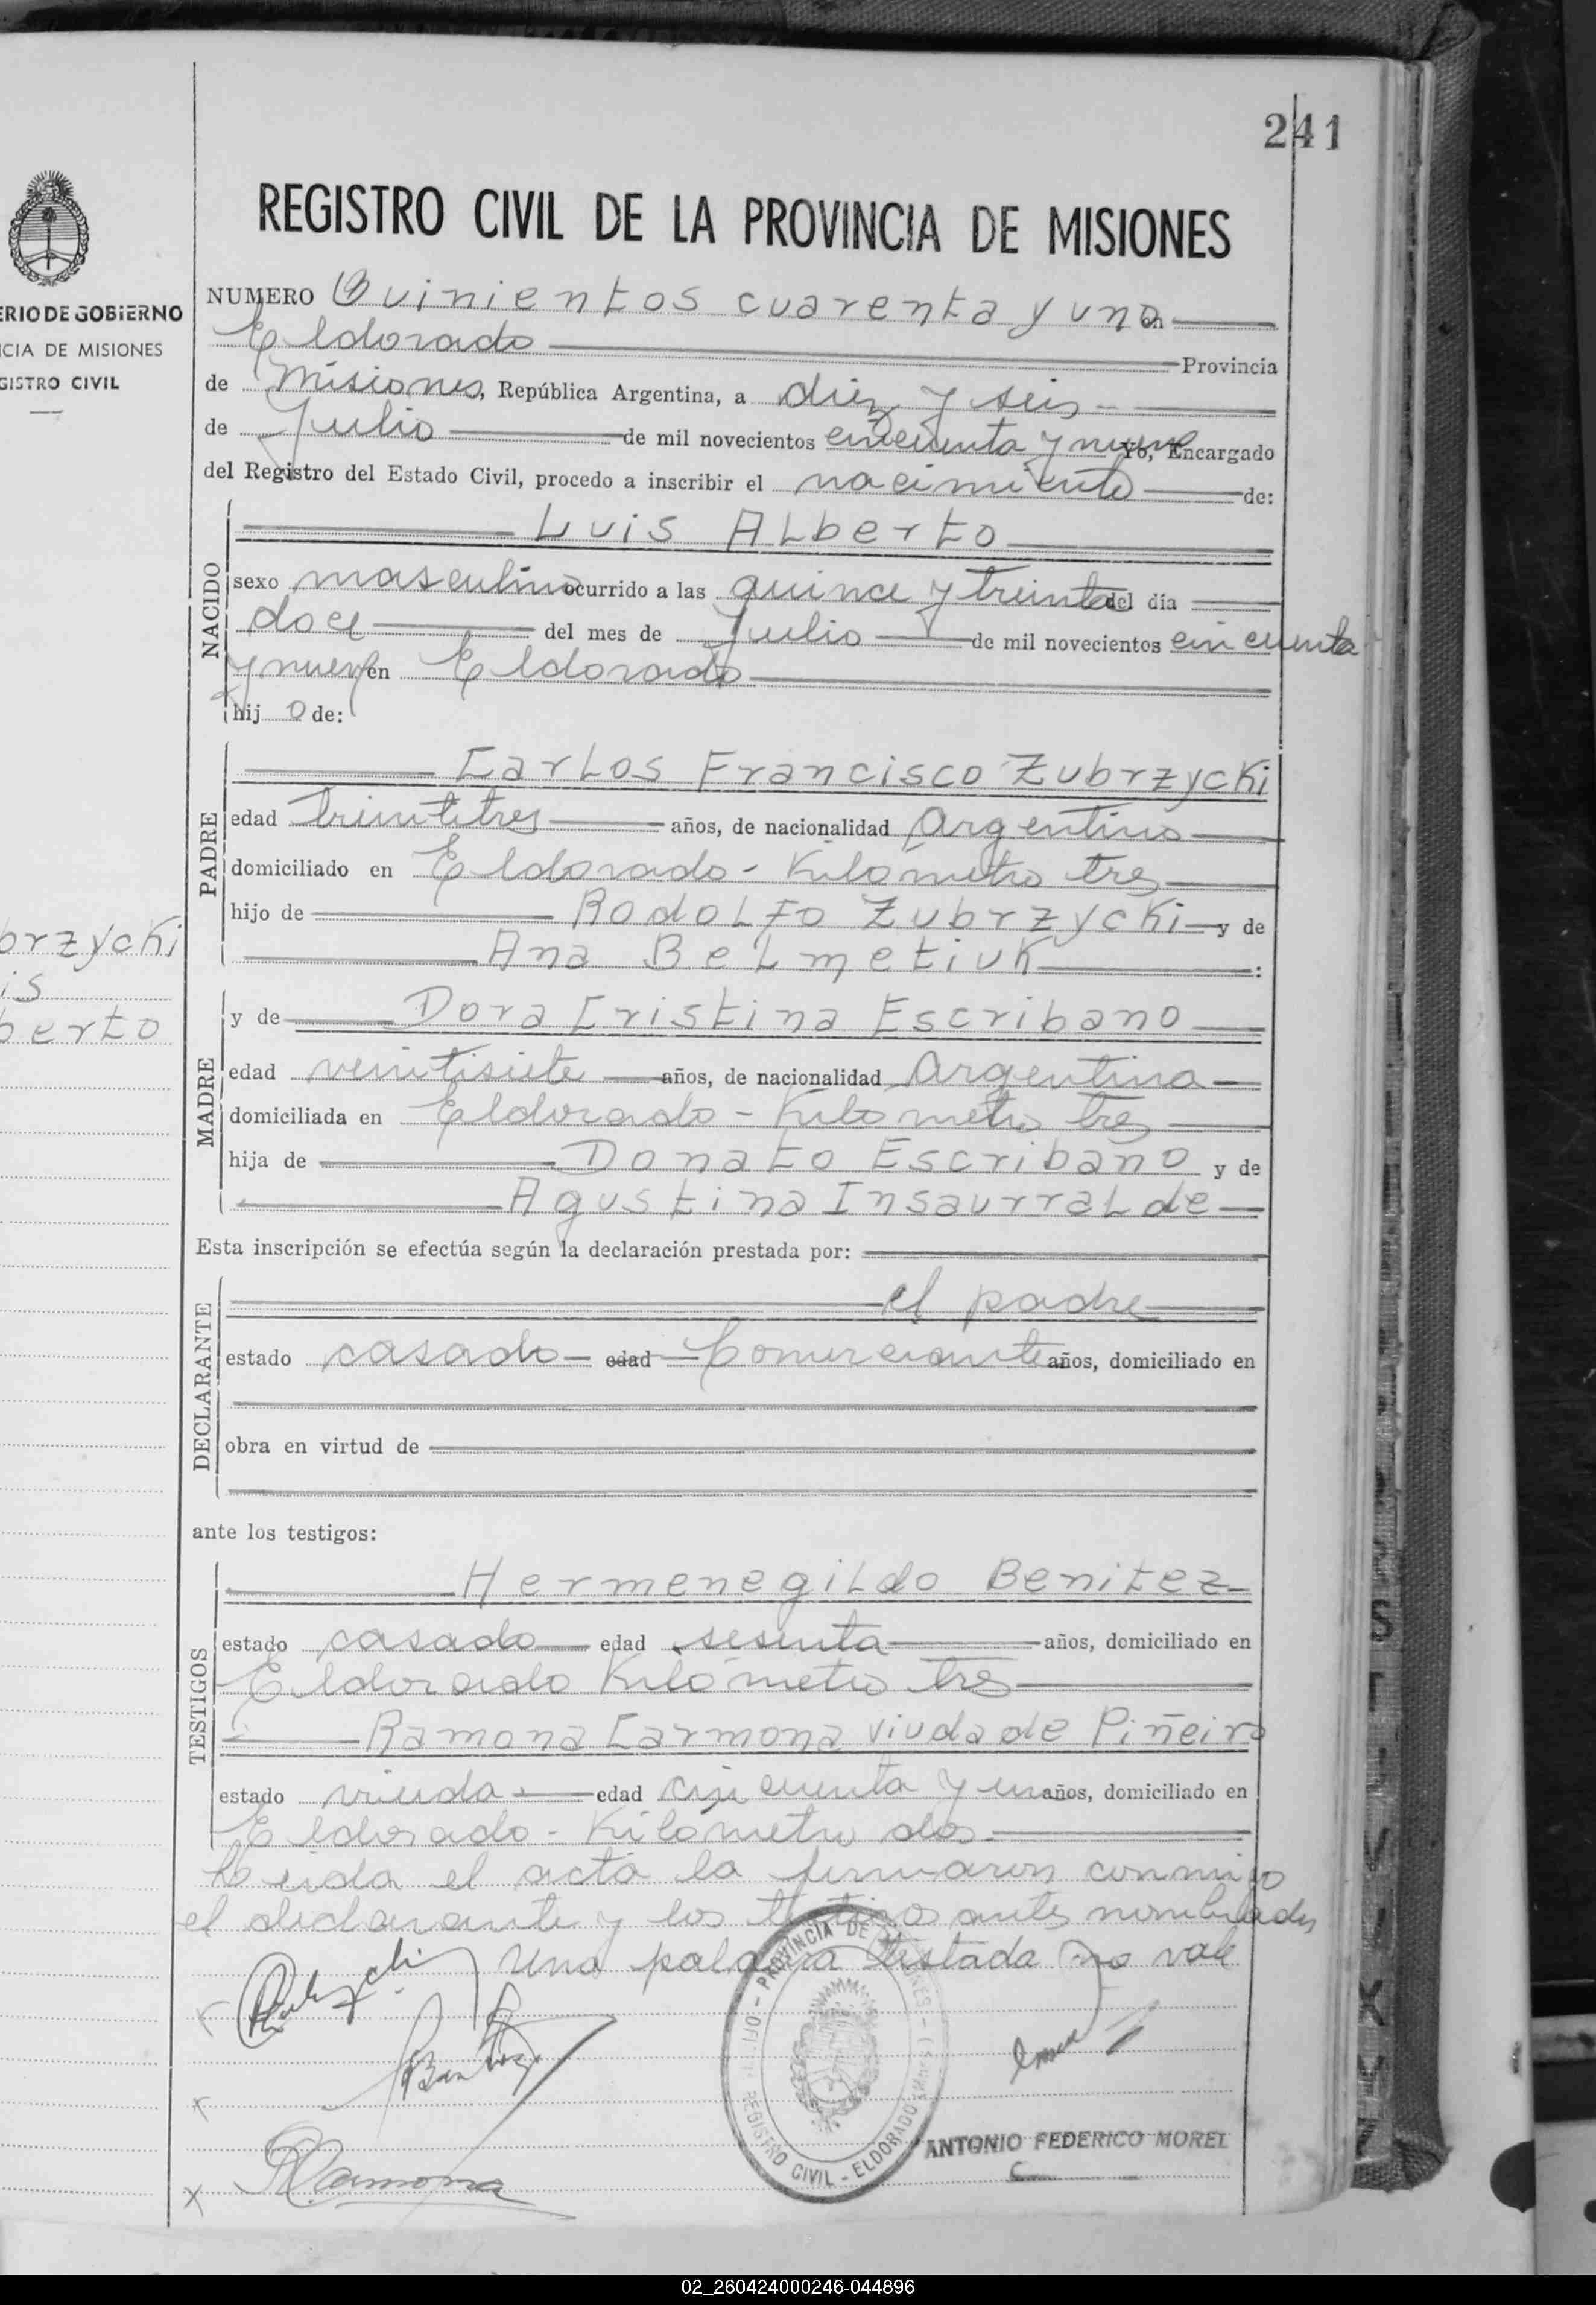 241
REGISTRO CIVIL DE LA PROVINCIA DE MISIONES
ERIO DE GOBIERNO
CIA DE MISIONES
GISTRO CIVIL
NUMERO Quinientos cuarenta y uno en
Eldorado Provincia
de Misiones, República Argentina, a diez y seis
de Julio de mil novecientos cincuenta y nueve Yo, Encargado
del Registro del Estado Civil, procedo a inscribir el nacimiento de:
NACIDO
Luis Alberto
sexo masculino ocurrido a las quince y treinta del día
doce del mes de Julio de mil novecientos cincuenta
y nueve en Eldorado
hij o de:
PADRE
Carlos Francisco Zubrzycki
edad treintitres años, de nacionalidad Argentino
domiciliado en Eldorado - Kilómetro tres
hijo de Rodolfo Zubrzycki y de
Ana Belmetiuk :
brzycki
is
berto
MADRE
y de Dora Cristina Escribano
edad veintisiete años, de nacionalidad Argentina
domiciliada en Eldorado - Kilometro tres
hija de Donato Escribano y de
Agustina Insaurralde
Esta inscripción se efectúa según la declaración prestada por:
DECLARANTE
el padre
estado casado - edad - Comerciante años, domiciliado en
obra en virtud de
ante los testigos:
TESTIGOS
Hermenegildo Benitez
estado casado edad sesenta años, domiciliado en
Eldorado Kilómetro tres
Ramona Carmona viuda de Piñeiro
estado viuda edad cincuenta y un años, domiciliado en
Eldorado - Kilómetro dos.
Leida el acta la firmaron conmigo
el declarante y los testigos antes nombrados
Una palabra testada no vale
Zubrzycki
Benitez
RCarmona
PROVINCIA DE MISIONES
REGISTRO CIVIL - ELDORADO
ANTONIO FEDERICO MOREL
02_260424000246-044896